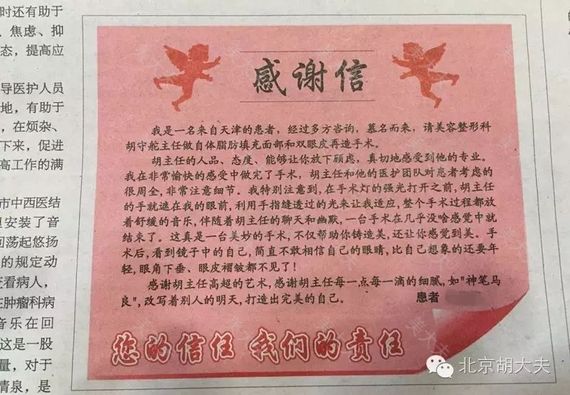 时还有助于
、焦虑、抑
态，提高应
导医护人员
地，有助于
，在烦杂、
下来，促进
高工作的满
市中西医结
安装了音
回荡起悠扬
的规定动
看病人，
在肿瘤科病
音乐在回
这是一股
量，对于
情泉，是
感谢信
我是一名来自天津的患者，经过多方咨询，慕名而来，请美容整形科
胡守舵主任做自体脂肪填充面部和双眼皮再造手术。
胡主任的人品、态度、能够让你放下顾虑，真切地感受到他的专业。
我在非常愉快的感受中做完了手术，胡主任和他的医护团队对患者考虑的
很周全，非常注意细节。我特别注意到，在手术灯的强光打开之前，胡主任
的手就遮在我的眼前，利用手指缝透过的光来让我适应，整个手术过程都放
着舒缓的音乐，伴随着胡主任的聊天和幽默，一台手术在几乎没啥感觉中就
结束了。这真是一台美妙的手术，不仅帮助你铸造美，还让你感觉到美。手
术后，看到镜子中的自己，简直不敢相信自己的眼睛，比自己想象的还要年
轻，眼角下垂、眼皮褶皱都不见了！
感谢胡主任高超的艺术，感谢胡主任每一点每一滴的细腻，如"神笔马
良"，改写着别人的明天，打造出完美的自己。
患者
您的信任 我们的责任
北京胡大夫